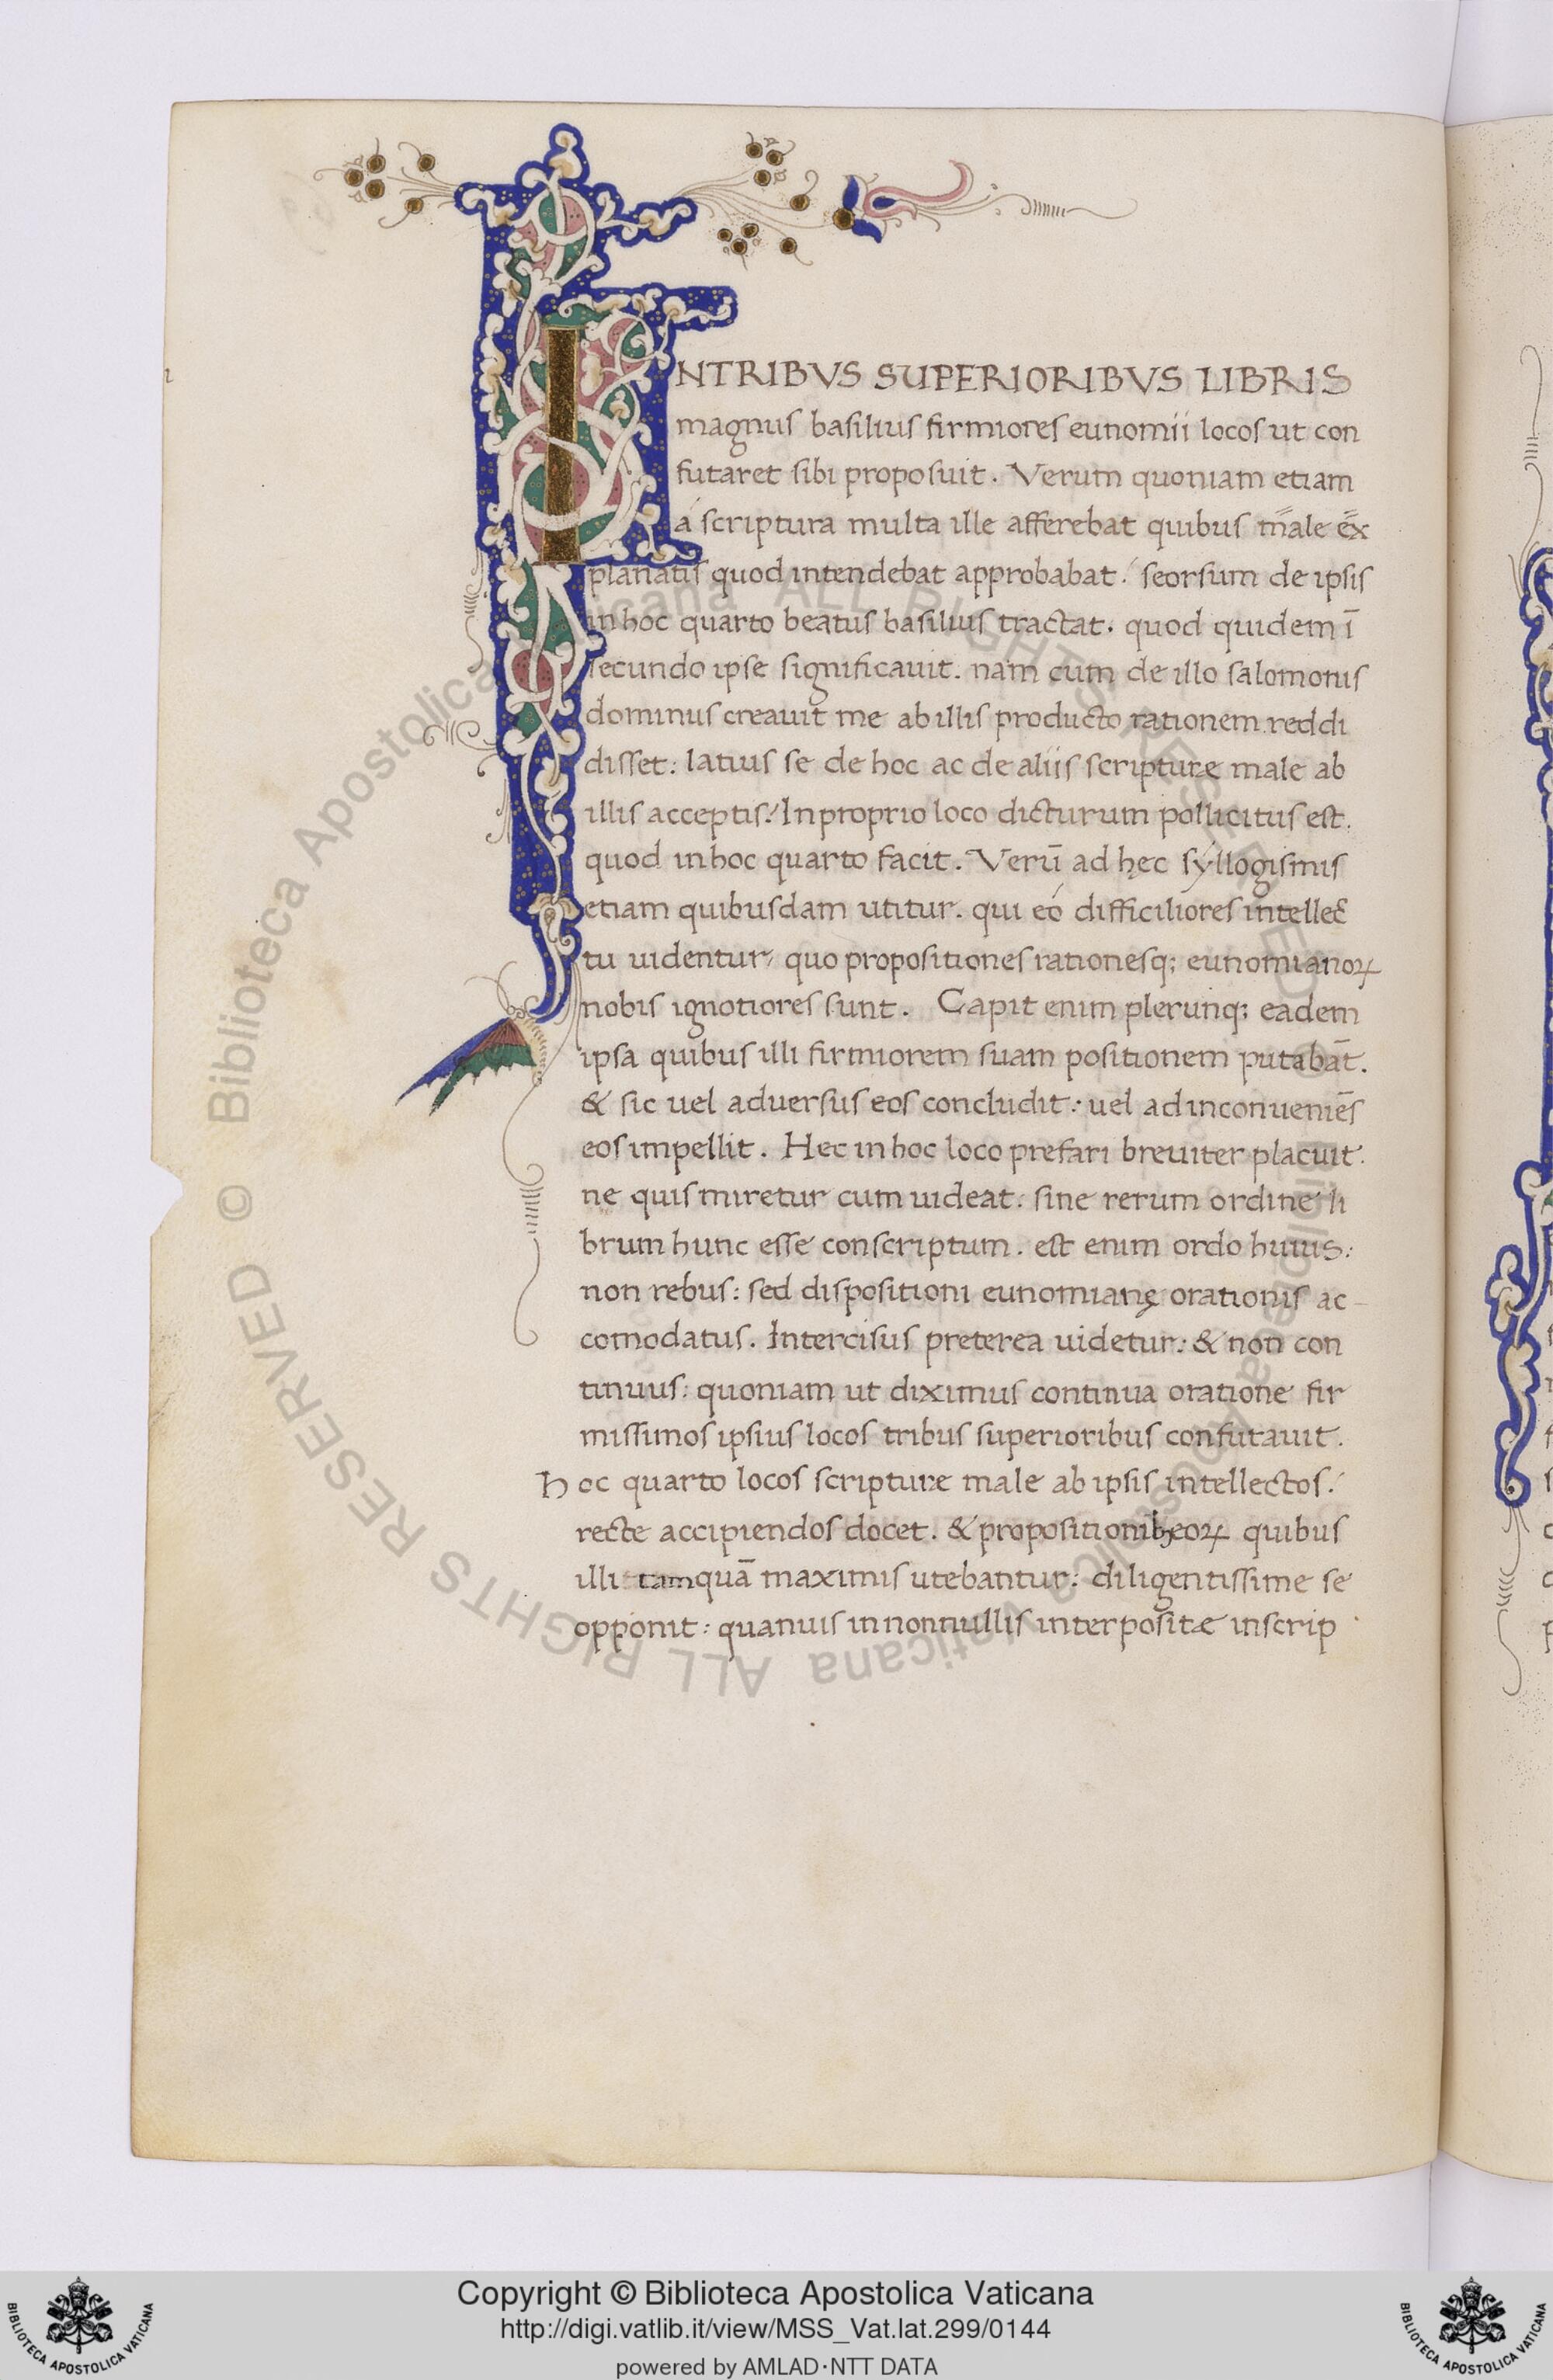 INTRIBVS SUPERIORIBVS LIBRIS
magnus basilius firmiores eunomii locos ut con
futaret sibi proposuit. Verum quoniam etiam
á scriptura multa ille afferebat quibus male ex
planatis quod intendebat approbabat. seorsum de ipsis
in hoc quarto beatus basilius tractat. quod quidem ī
secundo ipse significauit. nam cum de illo salomonis
dominus creauit me ab illis producto rationem reddi
disset: latius se de hoc ac de aliis scripturæ male ab
illis acceptis. In proprio loco dicturum pollicitus est.
quod in hoc quarto facit. Verū ad hęc syllogismis
etiam quibusdam utitur. qui eó difficiliores intellec
tu uidentur, quo propositiones rationesq; eunomianoꝝ
nobis ignotiores sunt. Capit enim plerunq; eadem
ipsa quibus illi firmiorem suam positionem putabāt.
& sic uel aduersus eos concludit: uel ad inconueniēs
eos impellit. Hec in hoc loco prefari breuiter placuit.
ne quis miretur cum uideat. sine rerum ordine li
brum hunc esse conscriptum. est enim ordo huius:
non rebus: sed dispositioni eunomianę orationis ac
comodatus. Intercisus preterea uidetur: & non con
tinuus: quoniam ut diximus continua oratione fir
missimos ipsius locos tribus superioribus confutauit.
Hoc quarto locos scripturæ male ab ipsis intellectos.
recte accipiendos docet. & propositionibꝫ eoꝝ quibus
illi tamquā maximis utebantur: diligentissime se
opponit: quanuis in nonnullis interpositæ inscrip
© Biblioteca Apostolica Vaticana ALL RIGHTS RESERVED © Biblioteca Apostolica Vaticana ALL RIGHTS RESERVED
BIBLIOTECA APOSTOLICA VATICANA
Copyright © Biblioteca Apostolica Vaticana
http://digi.vatlib.it/view/MSS_Vat.lat.299/0144
powered by AMLAD·NTT DATA
BIBLIOTECA APOSTOLICA VATICANA